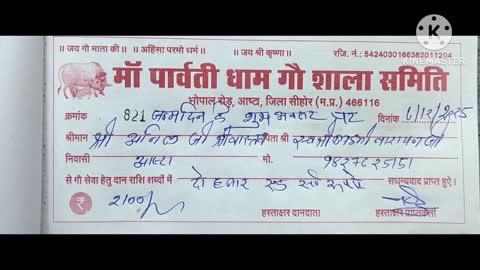 KINEMASTER
|| जय गौ माता की ।। || अहिंसा परमो धर्म ।। || जय श्री कृष्णा ।। रजि. नं.: 5424030166362011204
माँ पार्वती धाम गौ शाला समिति
भोपाल रोड़, आष्टा, जिला सीहोर (म.प्र.) 466116
क्रमांक 821 जन्मदिन के शुभ अवसर पर दिनांक 6/12/2025
श्रीमान श्री अनिल जी श्रीवास्तव पिता श्री स्व. श्री लक्ष्मीनारायण जी
निवासी आष्टा मो. 9827625151
से गौ सेवा हेतु दान राशि शब्दों में दो हजार एक सौ रूपये सधन्यवाद प्राप्त हुऐ।
₹ 2100/-
हस्ताक्षर दानदाता हस्ताक्षर प्राप्तकर्ता